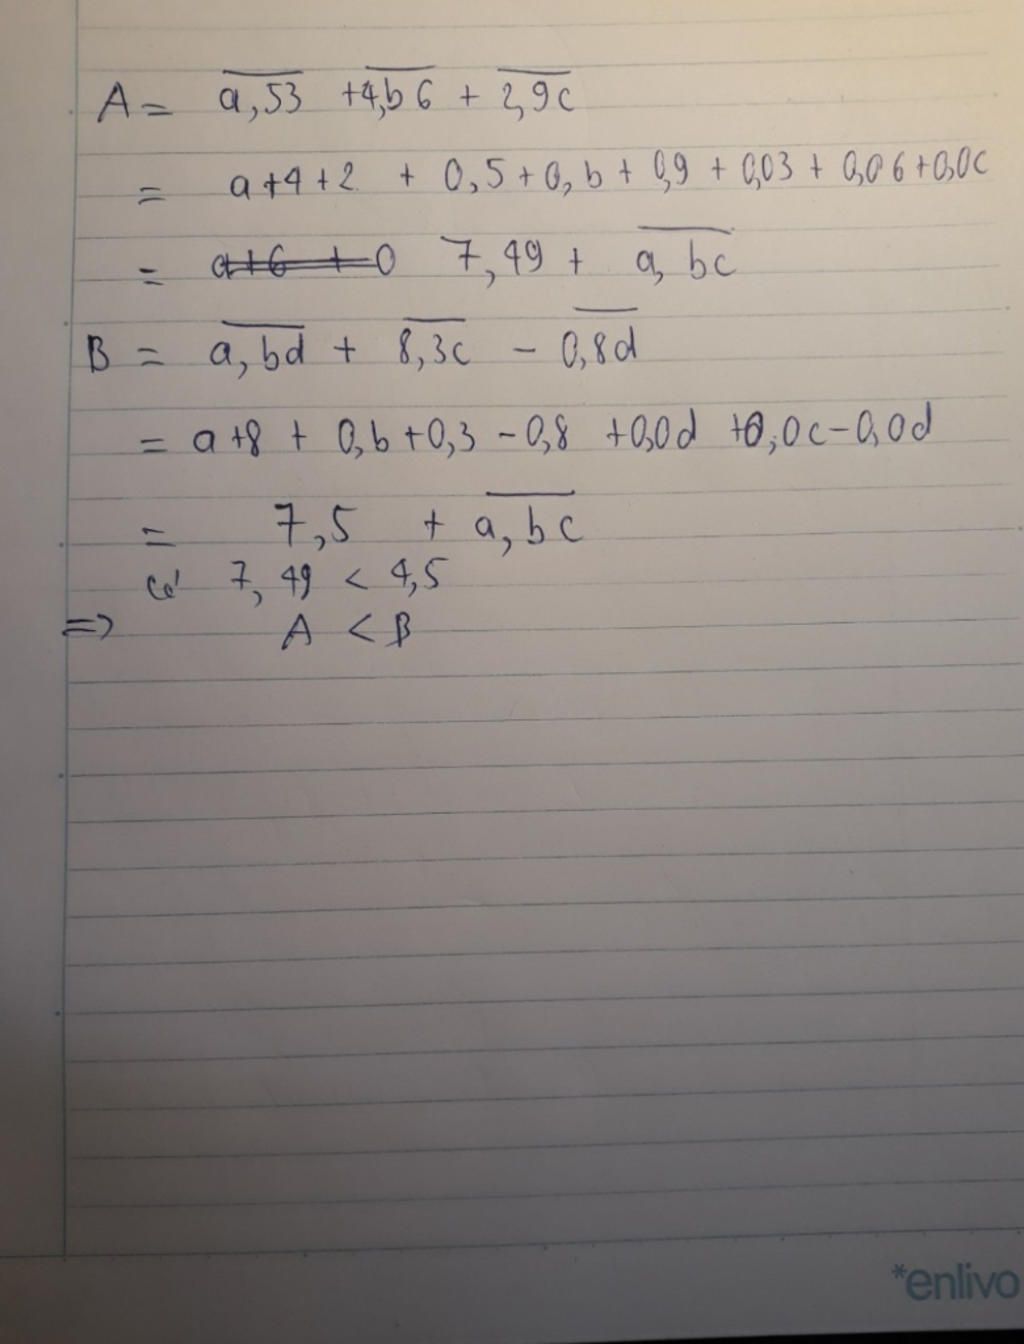 A = a,53 + 4,b6 + 2,9c
= a+4+2 + 0,5+0,b + 0,9 + 0,03 + 0,06+0,0c
= a+6 + 0 7,49 + a,bc
B = a,bd + 8,3c - 0,8d
= a+8 + 0,b+0,3 -0,8 +0,0d +0,0c-0,0d
= 7,5 + a,bc
Có 7,49 < 4,5
=> A < B
*enlivo